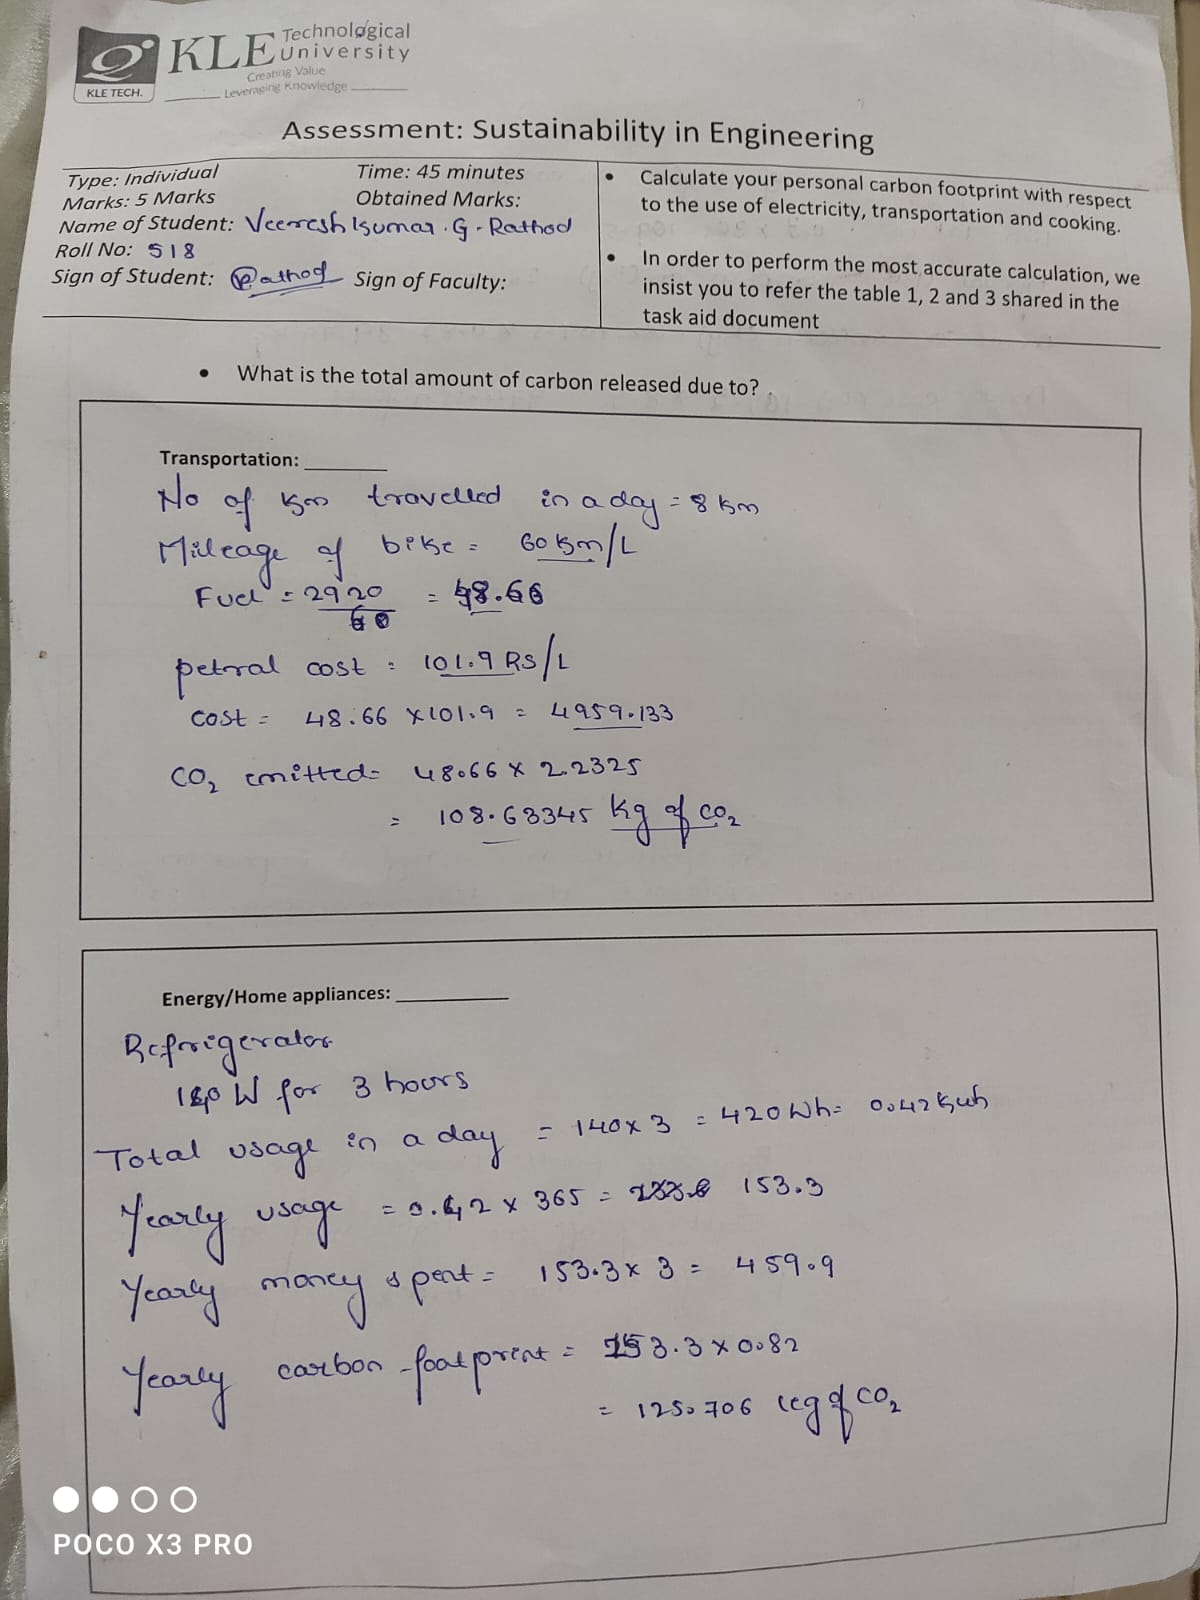 KLE Technological University
Creating Value
Leveraging Knowledge
KLE TECH.
Assessment: Sustainability in Engineering
Type: Individual Time: 45 minutes
Marks: 5 Marks Obtained Marks:
Name of Student: Veeresh kumar. G. Rathod
Roll No: 518
Sign of Student: Rathod Sign of Faculty:
• Calculate your personal carbon footprint with respect
to the use of electricity, transportation and cooking.
• In order to perform the most accurate calculation, we
insist you to refer the table 1, 2 and 3 shared in the
task aid document
• What is the total amount of carbon released due to?
Transportation: ________
No of km travelled in a day = 8 km
Mileage of bike = 60 km/L
Fuel = 2920/60 = 48.66
petral cost = 101.9 RS/L
cost = 48.66 x 101.9 = 4959.133
CO₂ emitted = 48.66 x 2.2325
= 108.63345 kg of CO₂
Energy/Home appliances: ___________
Refrigerator
W for 3 hours
Total usage in a day = 140 x 3 = 420 Wh = 0.42 kwh
Yearly usage = 0.42 x 365 = 153.3
Yearly money spent = 153.3 x 3 = 459.9
Yearly carbon footprint = 153.3 x 0.82
= 125.706 kg of CO₂
POCO X3 PRO